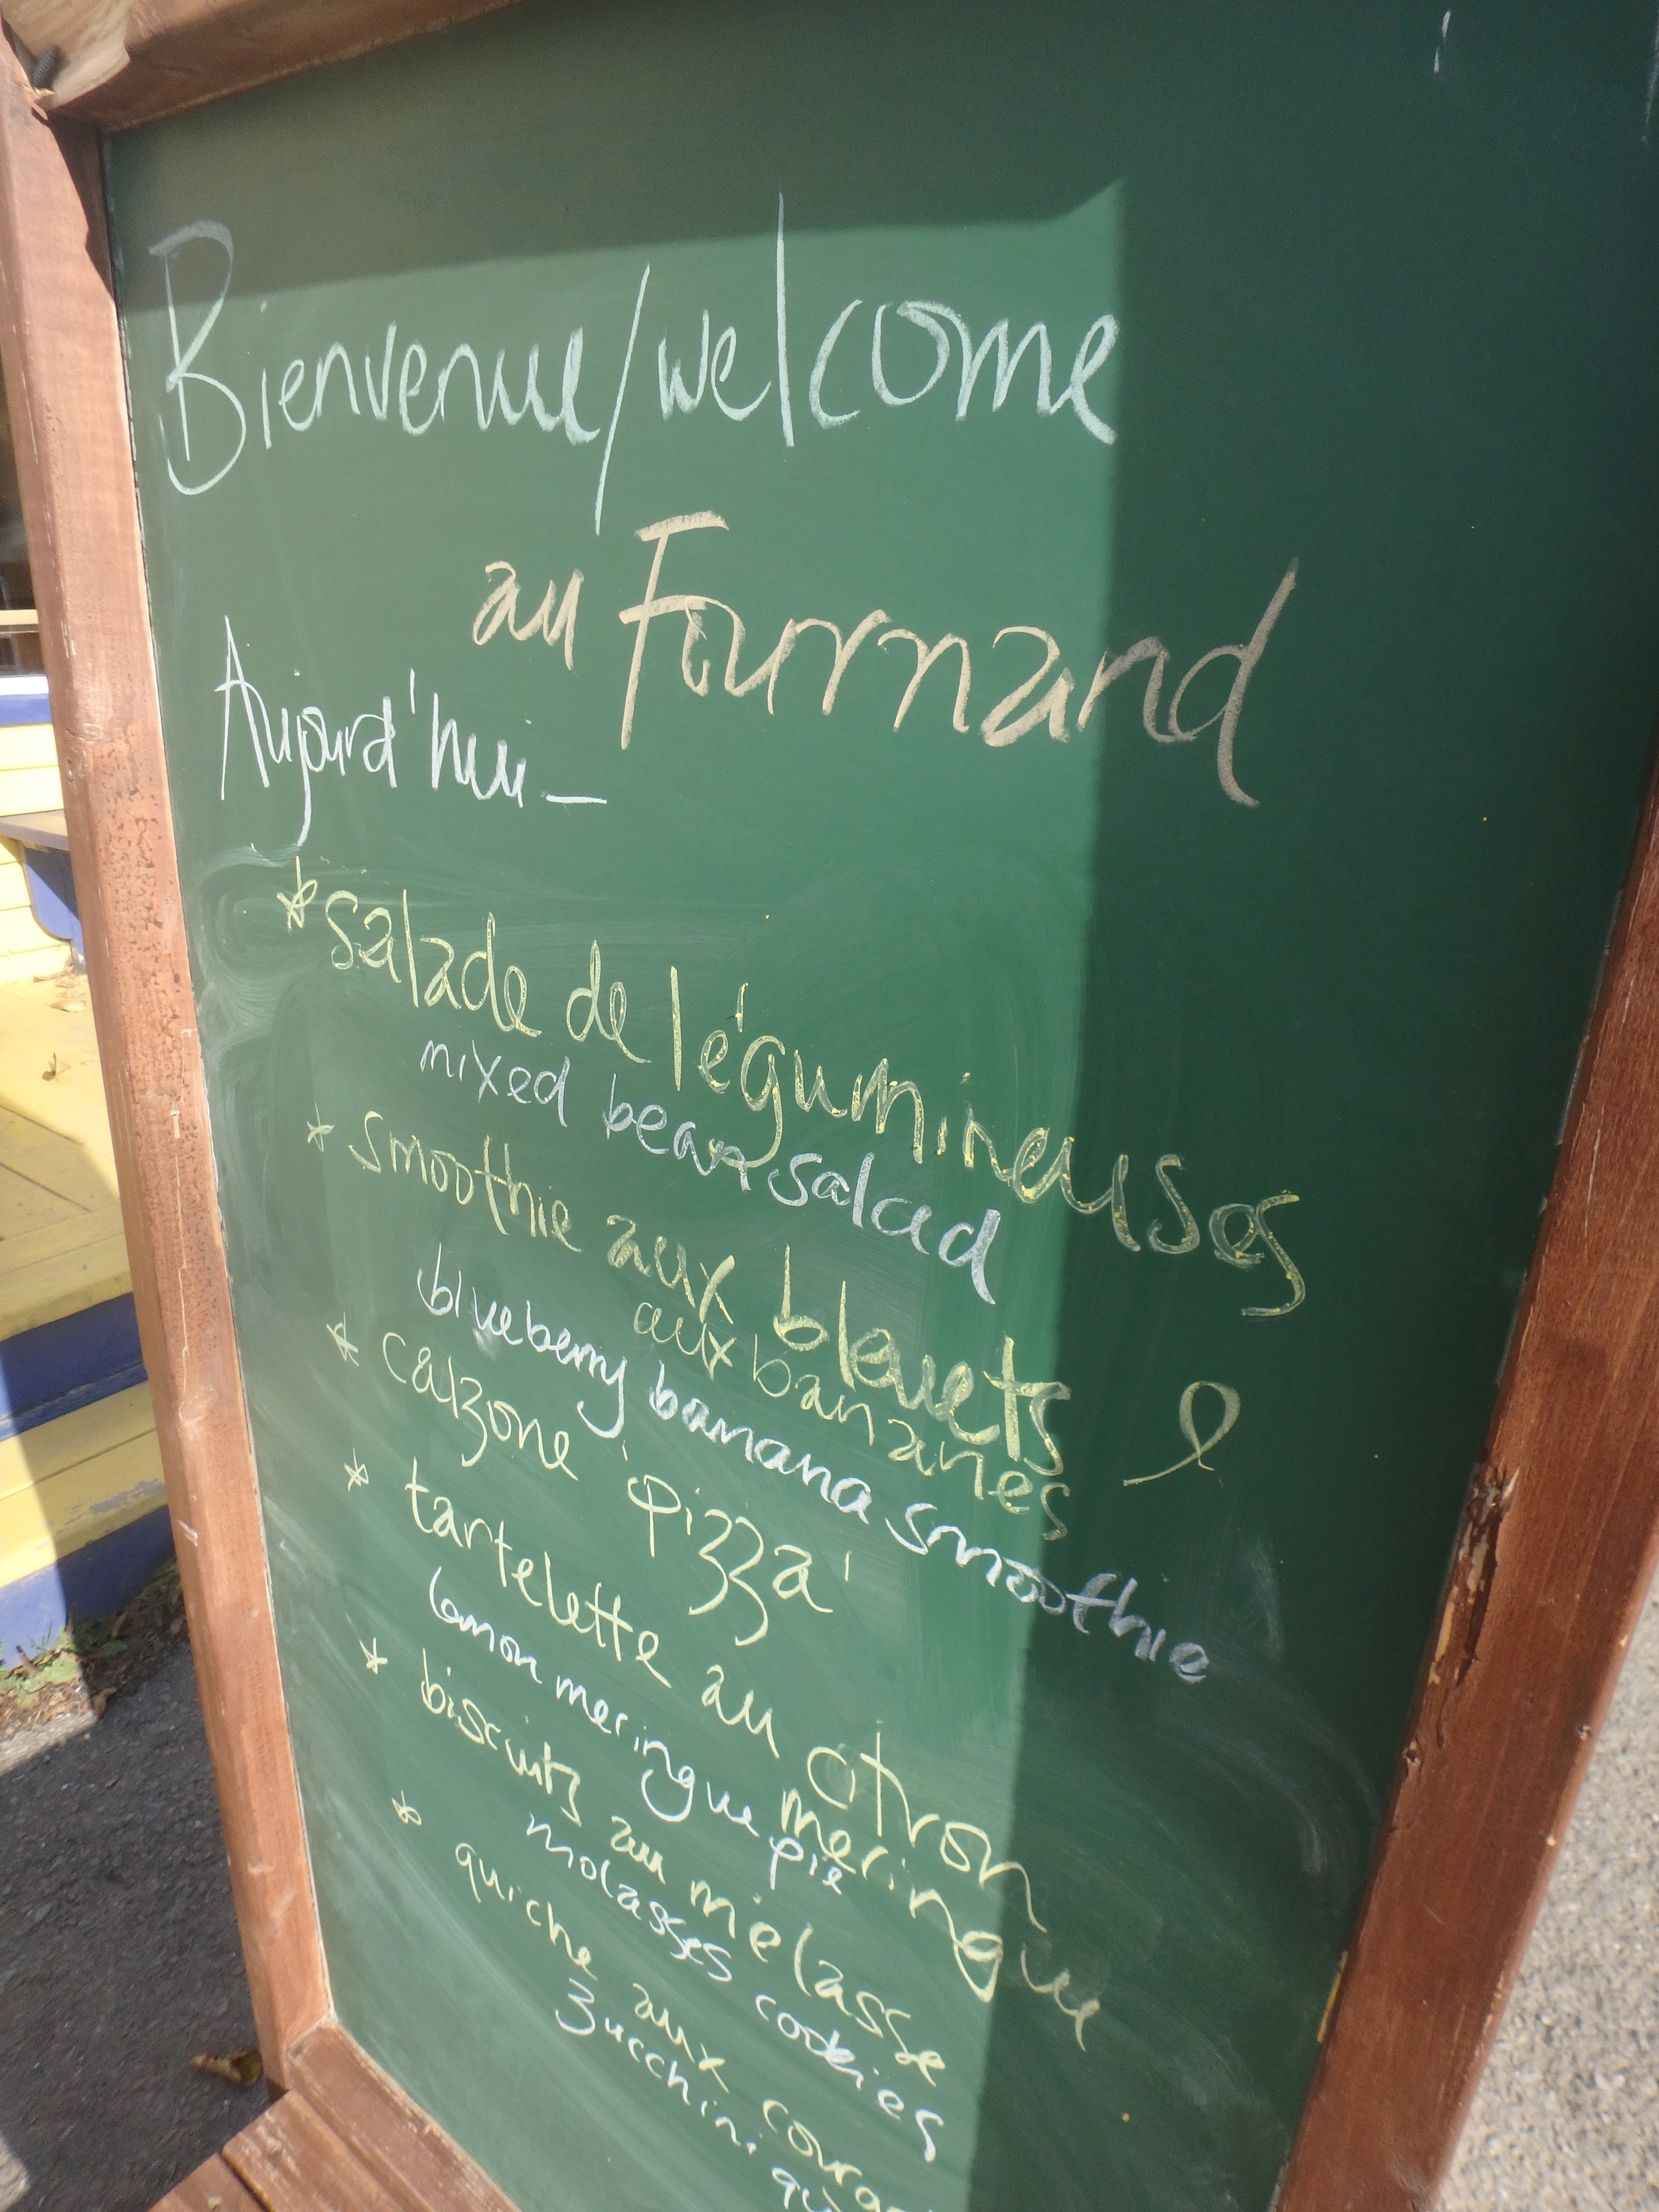 Bienvenue/welcome
au Fournand
Aujourd'hui_
* salade de légumineuses
mixed bean salad
* smoothie aux bleuets
aux bananes
blueberry banana smoothie
* calzone 'pizza'
* tartelette au citron
meringue
lemon meringue pie
* biscuits au mélasse
molasses cookies
* quiche aux
zucchini